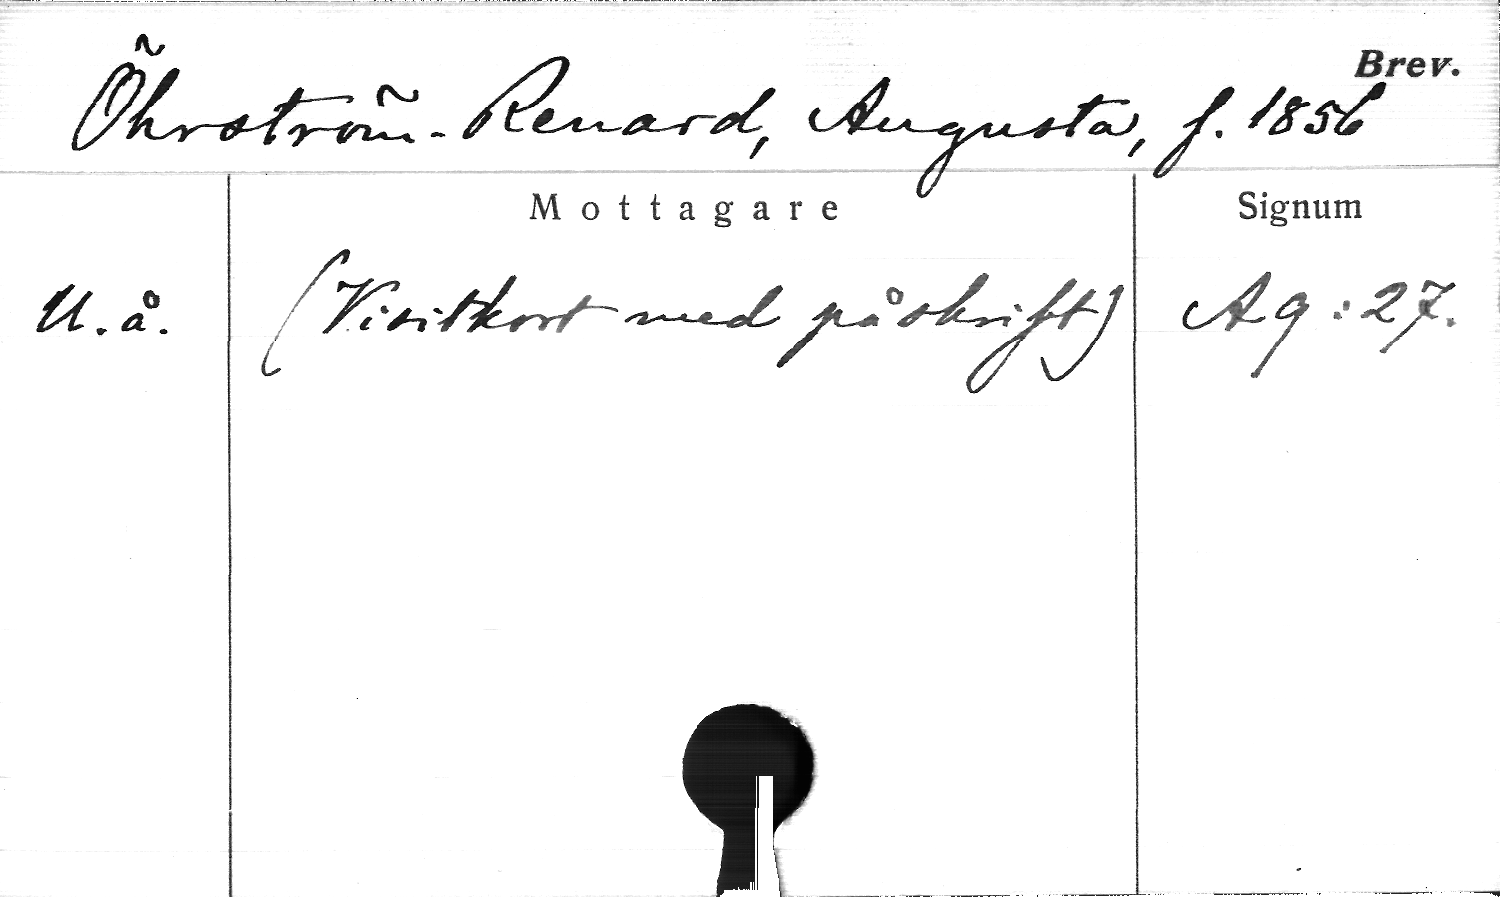 Brev.
Öhrström-Renard, Augusta, f. 1856
Mottagare
Signum
U.å. (Visitkort med påskrift) Ag:27.